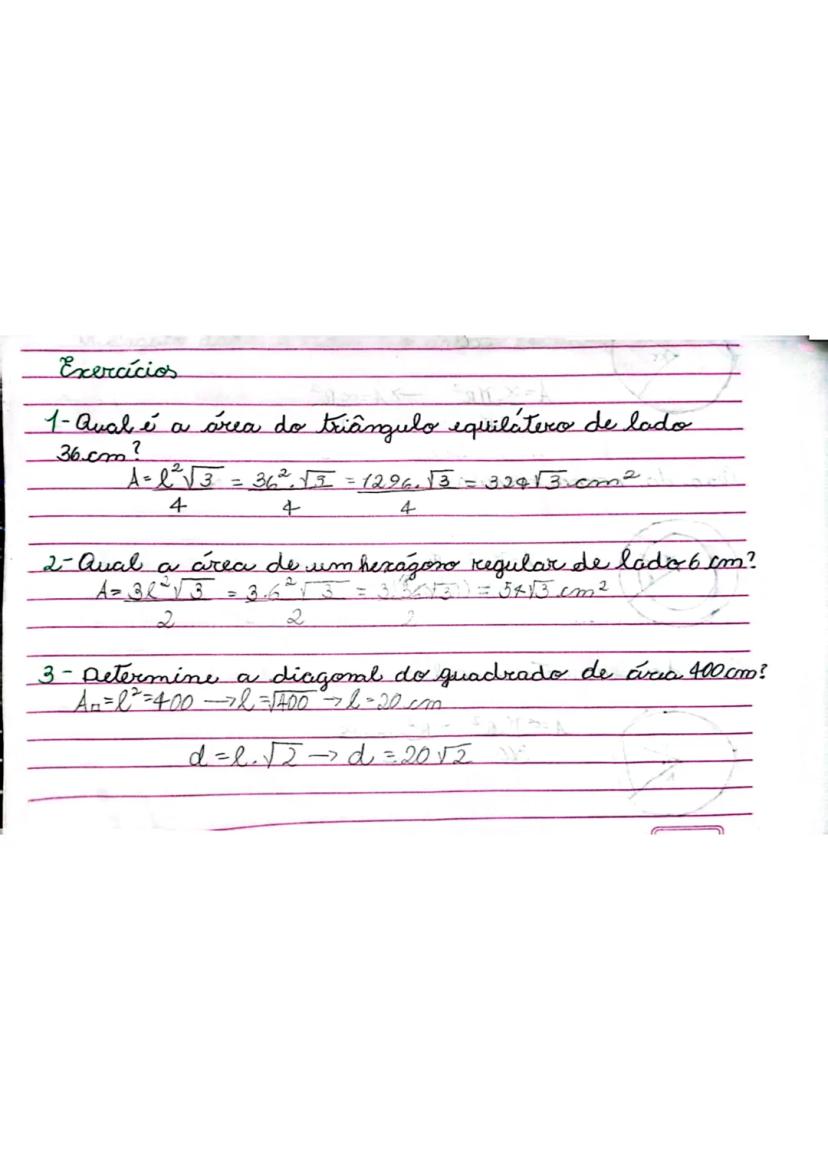 Exercícios
1- Qual é a área do triângulo equilátero de lado
36 cm?
A = l²√3/4 = 36².√3/4 = 1296.√3/4 = 324√3 cm²
2- Qual a área de um hexágono regular de lado 6 cm?
A = 3l²√3/2 = 3.6²√3/2 = 3.(36√3)/2 = 54√3 cm²
3- Determine a diagonal do quadrado de área 400cm?
A□ = l² = 400 → l = √400 → l = 20 cm
d = l.√2 → d = 20√2